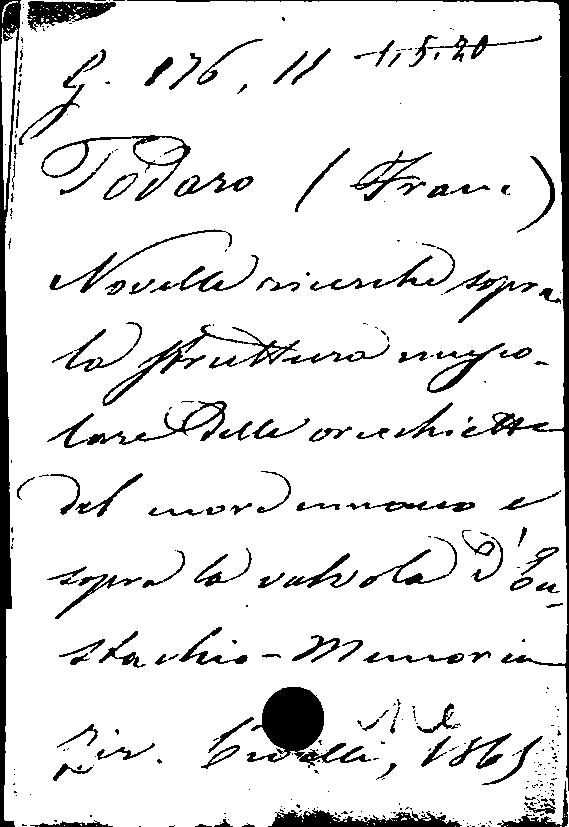 G. 876, 11 1.5.20
Todaro (Franc)
Novelle ricerche sopra
la struttura musco-
lare delle orecchiette
del cuore umano e
sopra la valvola d'Eu-
stachio - Memoria
Fir. Civelli, 1865